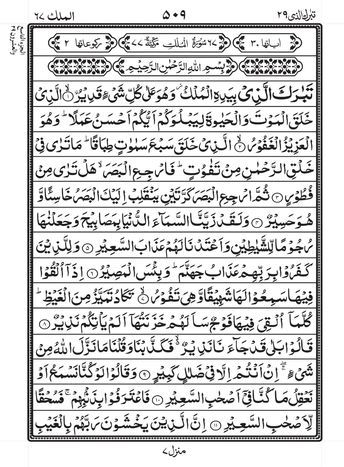 الملك ٦٧
٥٠٩
تبٰرك الذی ٢٩
اٰیاتها ٣٠
٦٧ سُوْرَةُ الْمُلْكِ مَكِّيَّةٌ ٧٧
رکوعاتها ٢
بِسْمِ اللّٰهِ الرَّحْمٰنِ الرَّحِيْمِ
تَبٰرَكَ الَّذِيْ بِيَدِهِ الْمُلْكُ ؗ وَهُوَ عَلٰى كُلِّ شَيْءٍ قَدِيْرُ ۙ ١ ۨالَّذِيْ
خَلَقَ الْمَوْتَ وَالْحَيٰوةَ لِيَبْلُوَكُمْ اَيُّكُمْ اَحْسَنُ عَمَلًا ؕ وَهُوَ
الْعَزِيْزُ الْغَفُوْرُ ۙ ٢ الَّذِيْ خَلَقَ سَبْعَ سَمٰوٰتٍ طِبَاقًا ؕ مَا تَرٰى فِيْ
خَلْقِ الرَّحْمٰنِ مِنْ تَفٰوُتٍ ؕ فَارْجِعِ الْبَصَرَ ۙ هَلْ تَرٰى مِنْ
فُطُوْرٍ ٣ ثُمَّ ارْجِعِ الْبَصَرَ كَرَّتَيْنِ يَنْقَلِبْ اِلَيْكَ الْبَصَرُ خَاسِئًا وَّ
هُوَ حَسِيْرٌ ٤ وَلَقَدْ زَيَّنَّا السَّمَآءَ الدُّنْيَا بِمَصَابِيْحَ وَجَعَلْنٰهَا
رُجُوْمًا لِّلشَّيٰطِيْنِ وَاَعْتَدْنَا لَهُمْ عَذَابَ السَّعِيْرِ ٥ وَلِلَّذِيْنَ
كَفَرُوْا بِرَبِّهِمْ عَذَابُ جَهَنَّمَ ؕ وَبِئْسَ الْمَصِيْرُ ٦ اِذَاۤ اُلْقُوْا
فِيْهَا سَمِعُوْا لَهَا شَهِيْقًا وَّهِيَ تَفُوْرُ ۙ ٧ تَكَادُ تَمَيَّزُ مِنَ الْغَيْظِ ؕ
كُلَّمَاۤ اُلْقِيَ فِيْهَا فَوْجٌ سَاَلَهُمْ خَزَنَتُهَاۤ اَلَمْ يَاْتِكُمْ نَذِيْرٌ ٨
قَالُوْا بَلٰى قَدْ جَآءَنَا نَذِيْرٌ ۙ۬ فَكَذَّبْنَا وَقُلْنَا مَا نَزَّلَ اللّٰهُ مِنْ
شَيْءٍ ۖۚ اِنْ اَنْتُمْ اِلَّا فِيْ ضَلٰلٍ كَبِيْرٍ ٩ وَقَالُوْا لَوْ كُنَّا نَسْمَعُ اَوْ
نَعْقِلُ مَا كُنَّا فِيْۤ اَصْحٰبِ السَّعِيْرِ ١٠ فَاعْتَرَفُوْا بِذَنْۢبِهِمْ ۚ فَسُحْقًا
لِّاَصْحٰبِ السَّعِيْرِ ١١ اِنَّ الَّذِيْنَ يَخْشَوْنَ رَبَّهُمْ بِالْغَيْبِ
منزل ٧